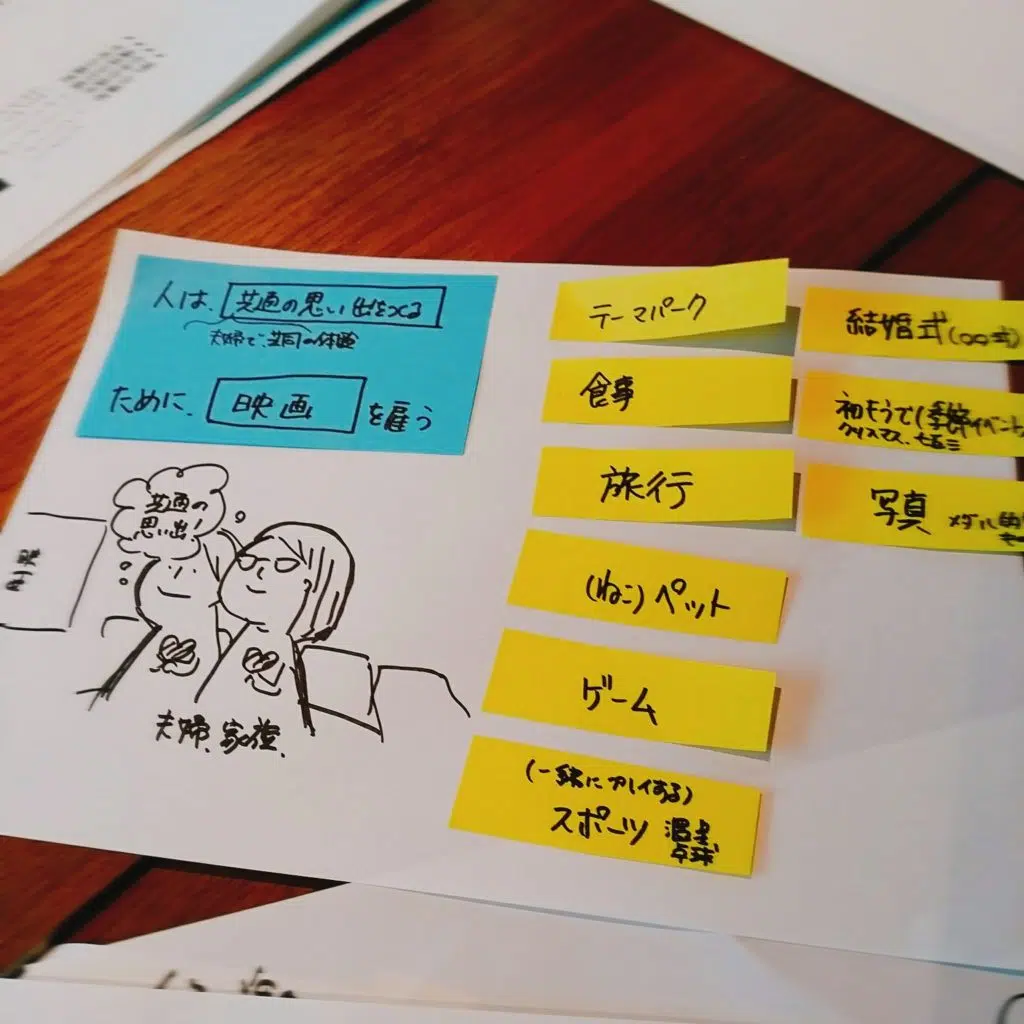 人は、共通の思い出をつくる
夫婦で、共同の体験
ために、映画を雇う
共通の
思い出!
夫婦、家族、
テーマパーク
食事
旅行
(ねこ)ペット
ゲーム
(一緒にプレイする)
スポーツ 温泉
卓球
結婚式(〇〇式)
初もうで(季節イベント
クリスマス、七五三
写真 メダル的